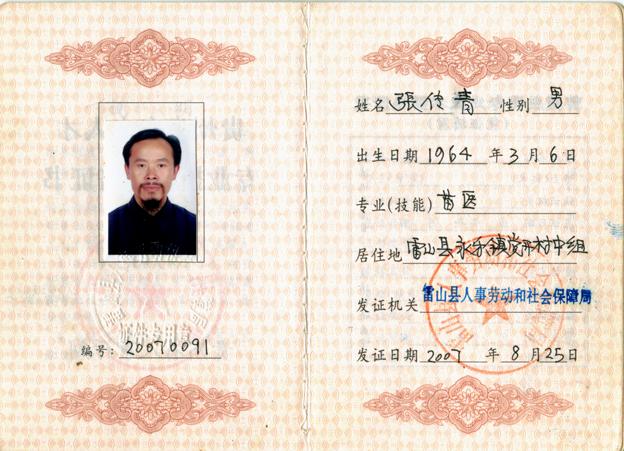 编号: 20070091
姓名 張传青 性别 男
出生日期 1964 年 3 月 6 日
专业(技能) 苗医
居住地 雷山县永乐镇党开村中组
发证机关 雷山县人事劳动和社会保障局
发证日期 2007 年 8 月 25 日